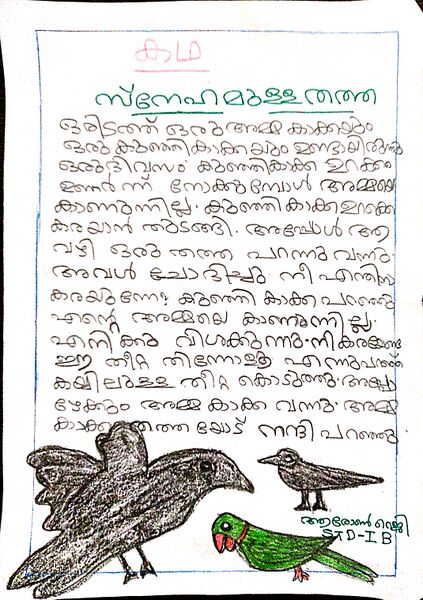 കഥ
സ്നേഹമുള്ള തത്ത
ഒരിടത്ത് ഒരു അമ്മ കാക്കയും
ഒരു കുഞ്ഞികാക്കയും ഉണ്ടായിരുന്നു
ഒരു ദിവസം കുഞ്ഞികാക്ക ഉറക്കം
ഉണർന്ന് നോക്കുമ്പോൾ അമ്മയെ
കാണുന്നില്ല. കുഞ്ഞികാക്ക ഉറക്കെ
കരയാൻ തുടങ്ങി. അപ്പോൾ ആ
വഴി ഒരു തത്ത പറന്നു വന്നു.
അവൾ ചോദിച്ചു. നീ എന്തിനാ
കരയുന്നേ? കുഞ്ഞി കാക്ക പറഞ്ഞു
എന്റെ അമ്മയെ കാണുന്നില്ല.
എനിക്കു വിശക്കുന്നു. നീ കരയേണ്ട
ഈ തീറ്റ തിന്നോളൂ എന്നുപറഞ്ഞ്
കയിലുള്ള തീറ്റ കൊടുത്തു. അപ്പോ
ഴേക്കും അമ്മ കാക്ക വന്നു. അമ്മ
കാക്ക തത്തയോട് നന്ദി പറഞ്ഞു.
ആരോൺ
STD-I B